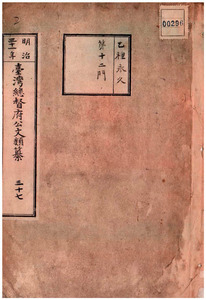 00296
乙種永久
第十二門
明治
卅一年
臺灣總督府公文類纂
三十七